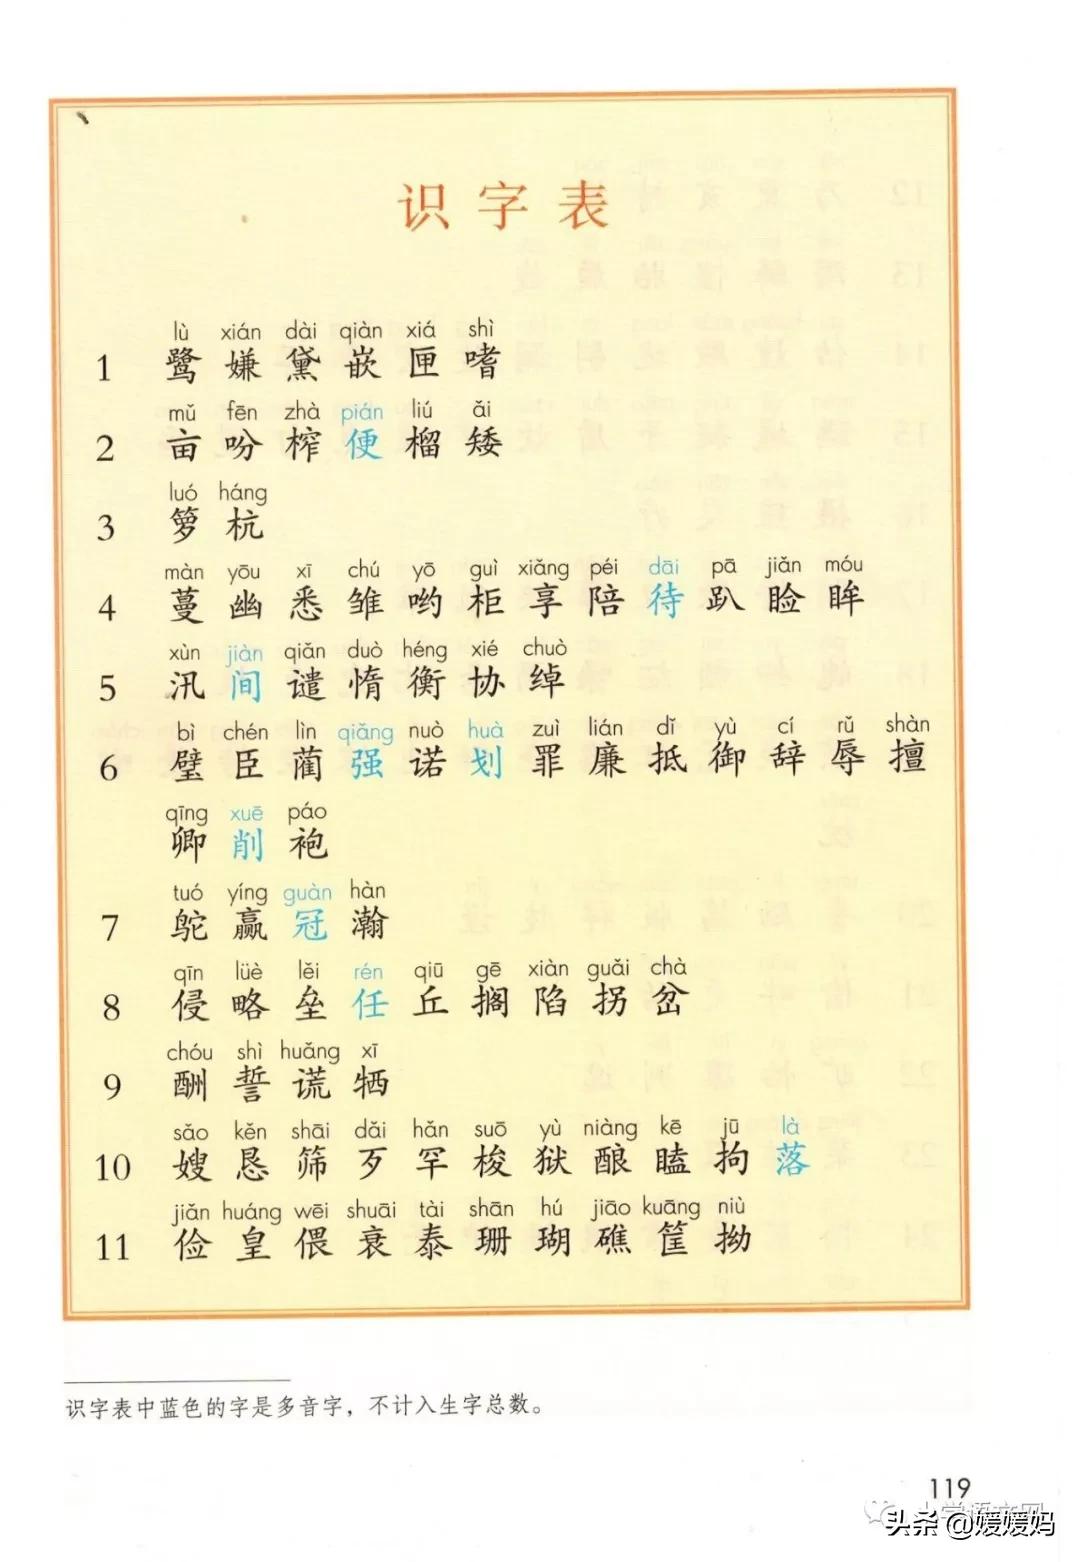 识字表
lù xián dài qiàn xiá shì
1 鹭 嫌 黛 嵌 匣 嗜
mǔ fēn zhà pián liú ǎi
2 亩 吩 榨 便 榴 矮
luó háng
3 箩 杭
màn yōu xī chú yō guì xiǎng péi dāi pā jiǎn móu
4 蔓 幽 悉 雏 哟 柜 享 陪 待 趴 睑 眸
xùn jiàn qiǎn duò héng xié chuò
5 汛 间 谴 惰 衡 协 绰
bì chén lìn qiǎng nuò huà zuì lián dǐ yù cí rǔ shàn
6 璧 臣 蔺 强 诺 划 罪 廉 抵 御 辞 辱 擅
qīng xuē páo
卿 削 袍
tuó yíng guàn hàn
7 鸵 赢 冠 瀚
qīn lüè lěi rén qiū gē xiàn guǎi chà
8 侵 略 垒 任 丘 搁 陷 拐 岔
chóu shì huǎng xī
9 酬 誓 谎 牺
sǎo kěn shāi dǎi hǎn suō yù niàng kē jū là
10 嫂 恳 筛 歹 罕 梭 狱 酿 瞌 拘 落
jiǎn huáng wēi shuāi tài shān hú jiāo kuāng niù
11 俭 皇 偎 衰 泰 珊 瑚 礁 筐 拗
识字表中蓝色的字是多音字，不计入生字总数。
119
小学语文网
头条 @媛媛妈